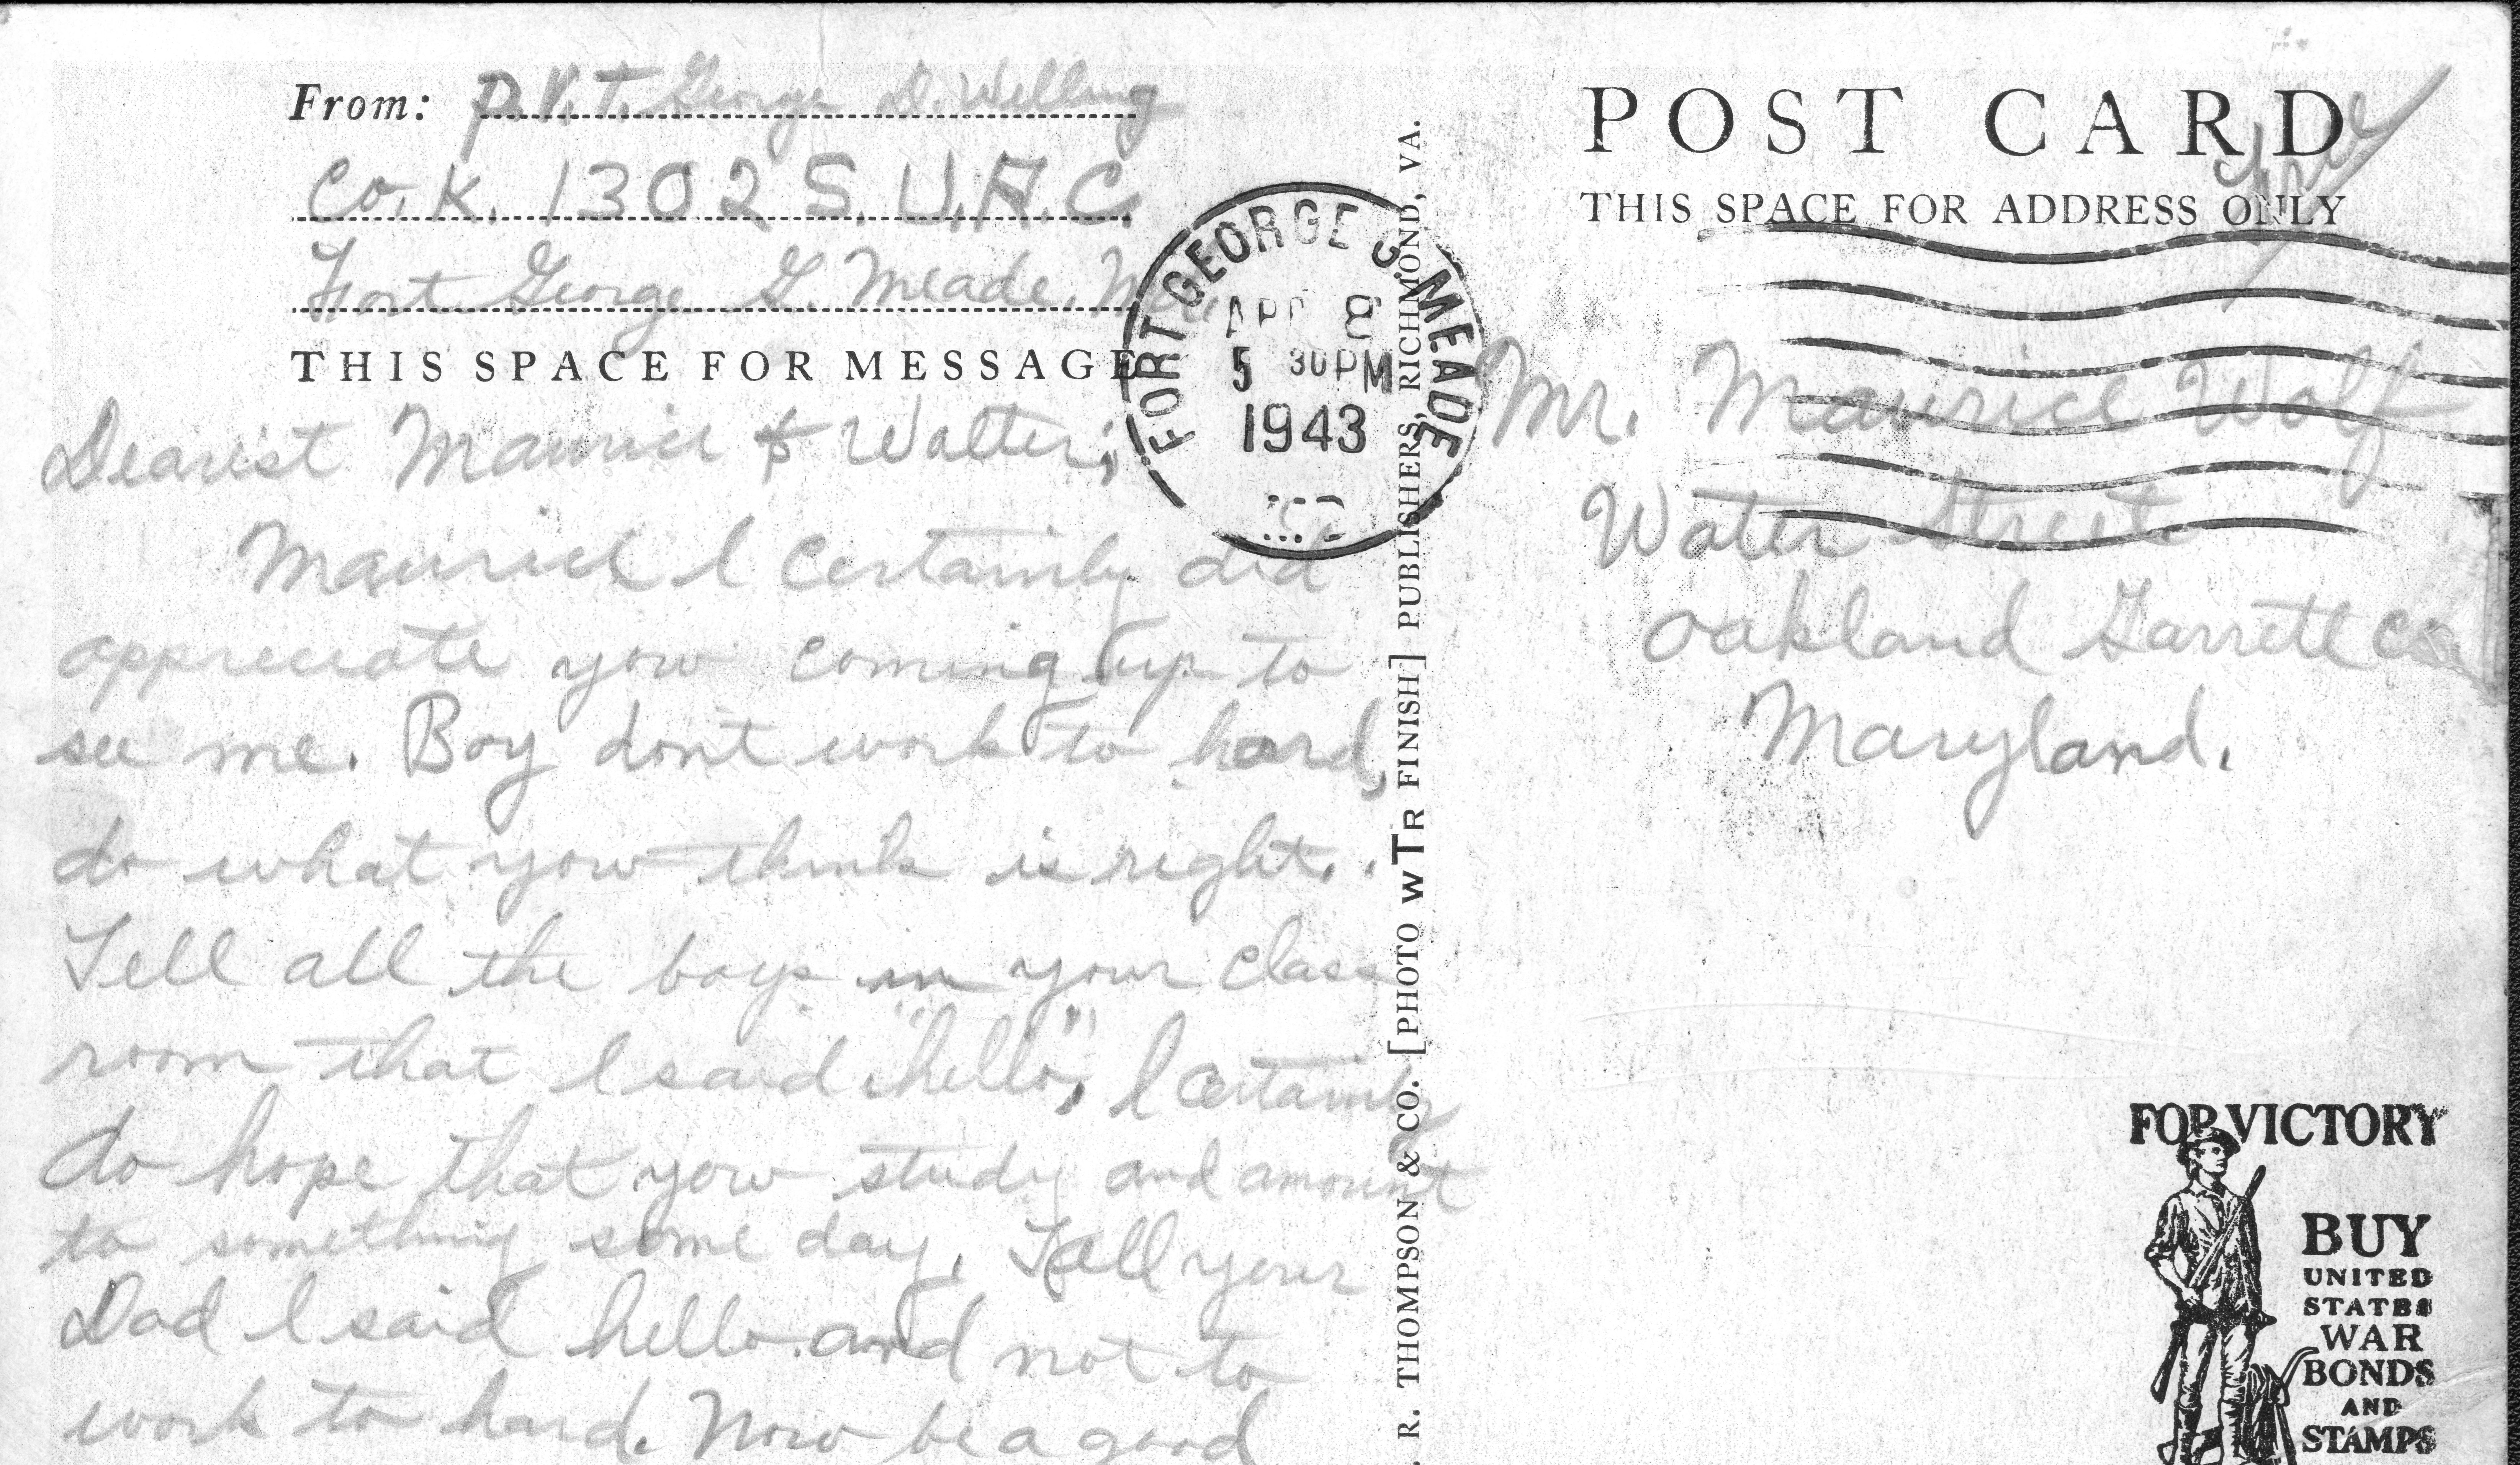 From: P.V.T. George D. Welling
Co. K. 1302 S.U.A.C.
Fort George G. Meade, Md.
THIS SPACE FOR MESSAGE
Dearest Maurice & Walter;
Maurice I certainly did
appreciate you coming up to
see me. Boy don't work to hard,
do what you think is right.
Tell all the boys in your class
room that I said "hello", I certainly
do hope that you study and amount
to something some day. Tell your
Dad I said hello and not to
work to hard. Now be a good
FORT GEORGE G. MEADE
APR 8
5 30 PM
1943
R. THOMPSON & CO. [PHOTO WTR FINISH] PUBLISHERS, RICHMOND, VA.
POST CARD
Free
THIS SPACE FOR ADDRESS ONLY
Mr. Maurice Wolf
Water Street
Oakland Garrett Co.
Maryland.
FOR VICTORY
BUY
UNITED
STATES
WAR
BONDS
AND
STAMPS